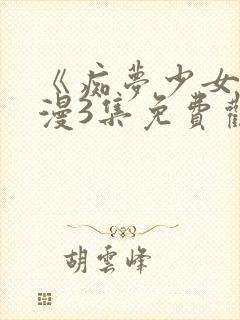 《痴夢少女
漫3集免費觀
胡雲峰